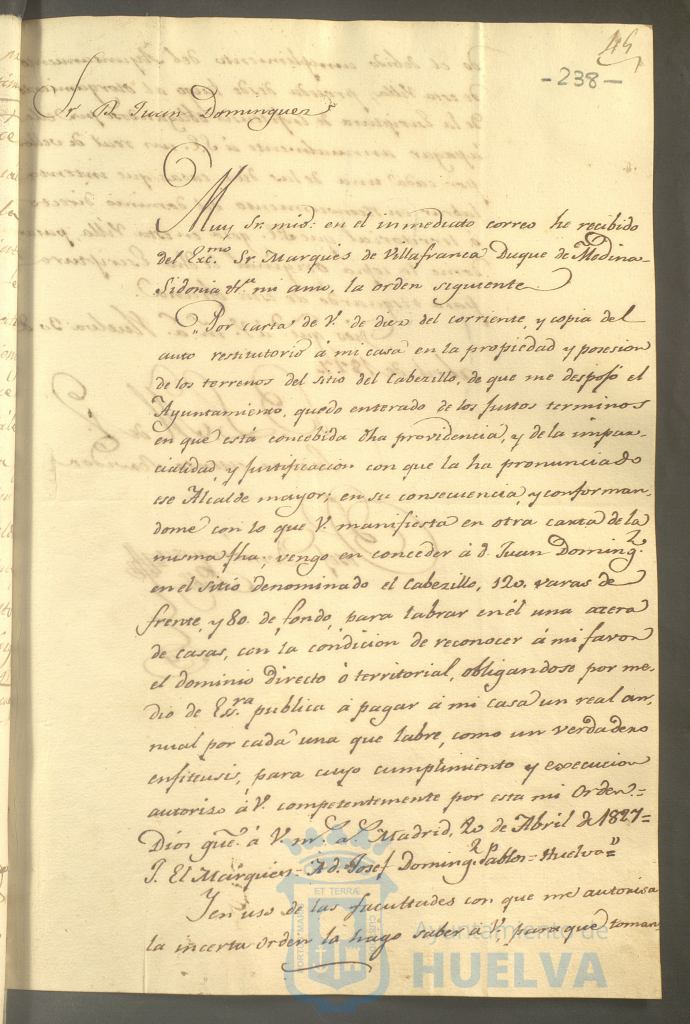 45
-238-
Sr. Dn. Juan Dominguez
Muy Sr. mio: en el inmediato correo he recibido
del Excmo. Sr. Marques de Villafranca Duque de Medina-
Sidonia &ra. mi amo, la orden siguiente
"Por carta de V. de diez del corriente, y copia del
auto restitutorio á mi casa en la propiedad y posesion
de los terrenos del sitio del Cabezillo, de que me despojó el
Ayuntamiento, quedo enterado de los justos terminos
en que está concebida dha providencia, y de la impar-
cialidad, y justificacion con que la ha pronunciado
ese Alcalde mayor: en su consecuencia, y conforman-
dome con lo que V. manifiesta en otra carta de la
misma fha, vengo en conceder á d. Juan Doming.z
en el sitio denominado el Cabezillo, 120. varas de
frente, y 80. de fondo, para labrar en él una azera
de casas, con la condicion de reconocer á mi favor
el dominio directo ó territorial, obligandose por me-
dio de Essra. publica á pagar á mi casa un real an-
nual por cada una que labre, como un verdadero
enfiteusis, para cuyo cumplimiento y execucion
autorizo á V. competentemente por esta mi Orden.=
Dios gue. á V. ms. as. Madrid, 20 de Abril de 1827=
P. El Marques= A d. Josef Doming.z Pablos= Huelva="
Y en uso de las facultades con que me autorisa
la incerta orden la hago saber á V. para que toman
ET TERRÆ
PORTUS MARIS
CUSTODIA
Ayuntamiento de
HUELVA